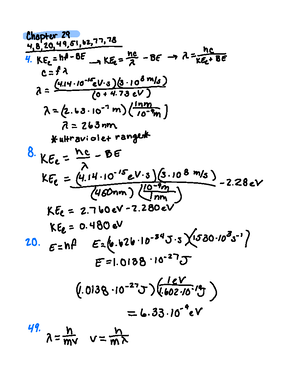 Chapter 29
4, 8, 20, 49, 51, 62, 77, 78
4. KEe = hf - BE → KEe = hc/λ - BE → λ = hc/(KEe + BE)
c = fλ
λ = (4.14·10⁻¹⁵ eV·s)(3·10⁸ m/s)/(0 + 4.73 eV)
λ = (2.63·10⁻⁷ m)(1nm/10⁻⁹m)
λ = 263nm
*ultraviolet range*
8. KEe = hc/λ - BE
KEe = (4.14·10⁻¹⁵ eV·s)(3·10⁸ m/s)/((450nm)(10⁻⁹m/1nm)) - 2.28eV
KEe = 2.760eV - 2.280eV
KEe = 0.480eV
20. E=hf E=(6.626·10⁻³⁴ J·s)(1530·10³ s⁻¹)
E=1.0138·10⁻²⁷ J
(1.0138·10⁻²⁷ J)(1eV/1.602·10⁻¹⁹ J)
= 6.33·10⁻⁹ eV
49.
λ = h/mv v = h/mλ